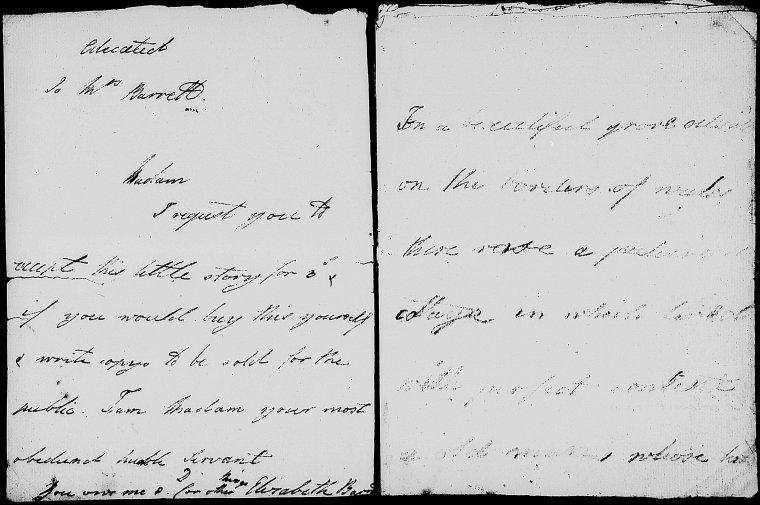 educated
To Mrs Barrett.
Madam
I request you to
accept this little story for
if you would buy this yourself
& write copys to be sold for the
public. I am Madam your most
obedient humble Servant
You owe me for other things Elizabeth
In a beautiful grove
on the borders of wales
there rose a
in which lived
with perfect content
a old man, whose